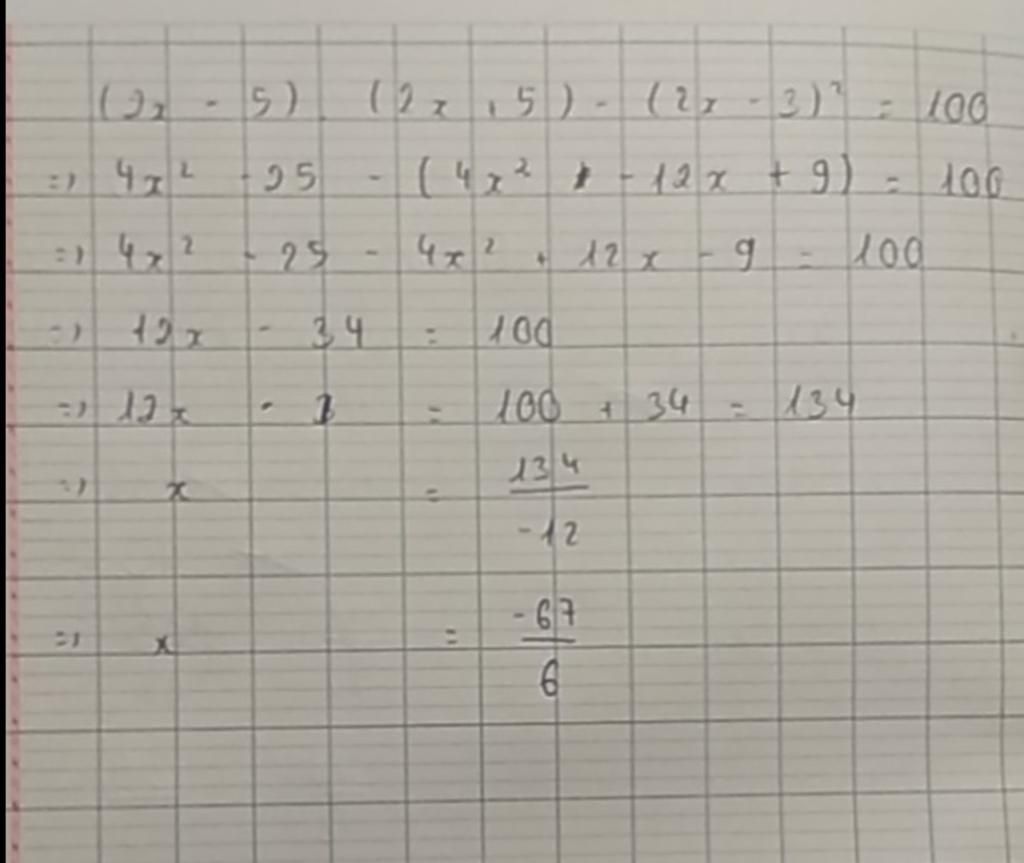 (2x - 5) . (2x + 5) - (2x - 3)² = 100
=> 4x² - 25 - (4x² - 12x + 9) = 100
=> 4x² - 25 - 4x² + 12x - 9 = 100
=> 12x - 34 = 100
=> 12x - = 100 + 34 = 134
=> x = 134/-12
=> x = -67/6